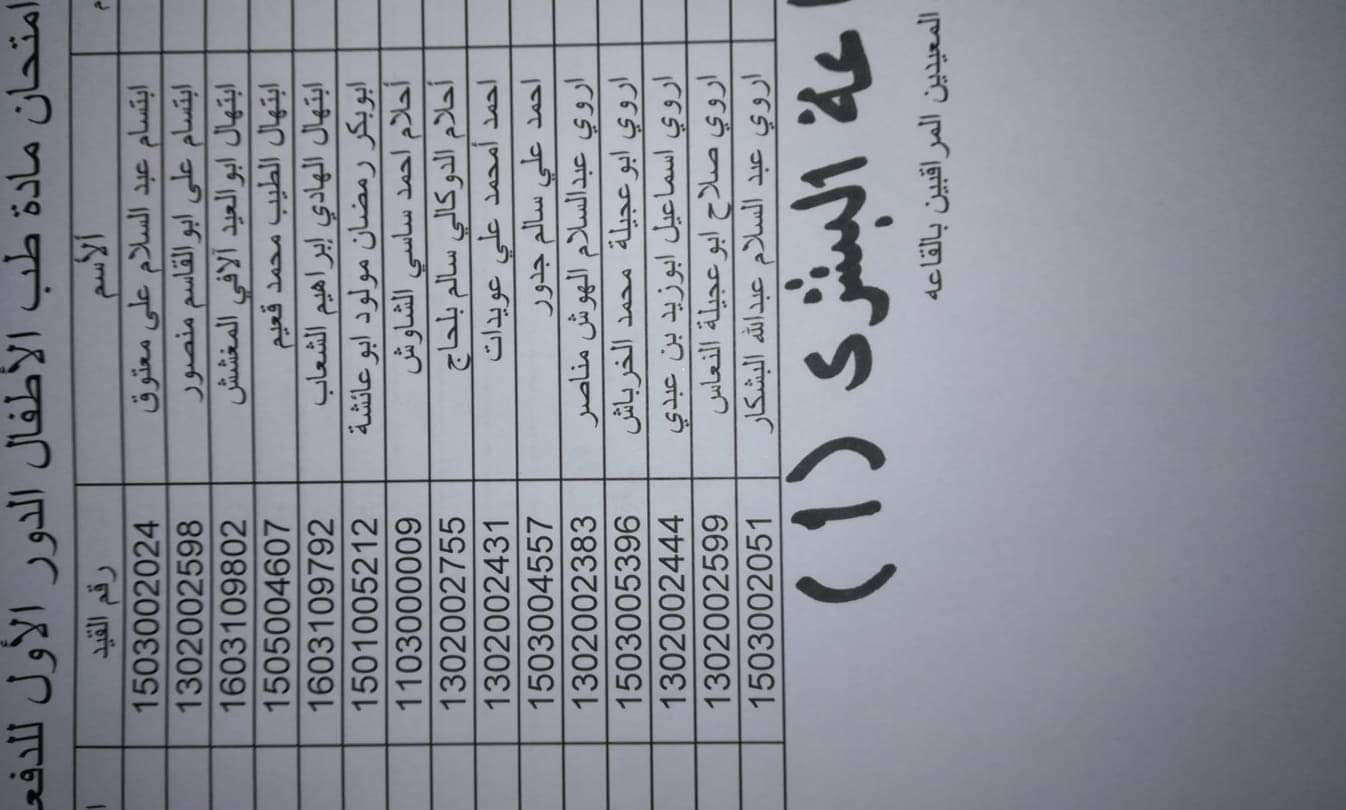 امتحان مادة طب الأطفال الدور الأول للدفع
الأسم رقم القيد
ابتسام عبد السلام على معتوق 1503002024
ابتسام على ابو القاسم منصور 1302002598
ابتهال ابو العيد آلافي المغشش 1603109802
ابتهال الطيب محمد قعيم 1505004607
ابتهال الهادي إبراهيم الشعاب 1603109792
ابوبكر رمضان مولود ابو عائشة 1501005212
أحلام احمد ساسي الشاوش 1103000009
أحلام الدوكالي سالم بلحاج 1302002755
احمد أمحمد علي عويدات 1302002431
احمد علي سالم جدور 1503004557
اروي عبدالسلام الهوش مناصر 1302002383
اروي ابو عجيلة محمد الخرباش 1503005396
اروي اسماعيل ابوزيد بن عبدي 1302002444
اروي صلاح ابو عجيلة النعاس 1302002599
اروي عبد السلام عبدالله البشكار 1503002051
اعة البشرى (١)
المعيدين المراقبين بالقاعه